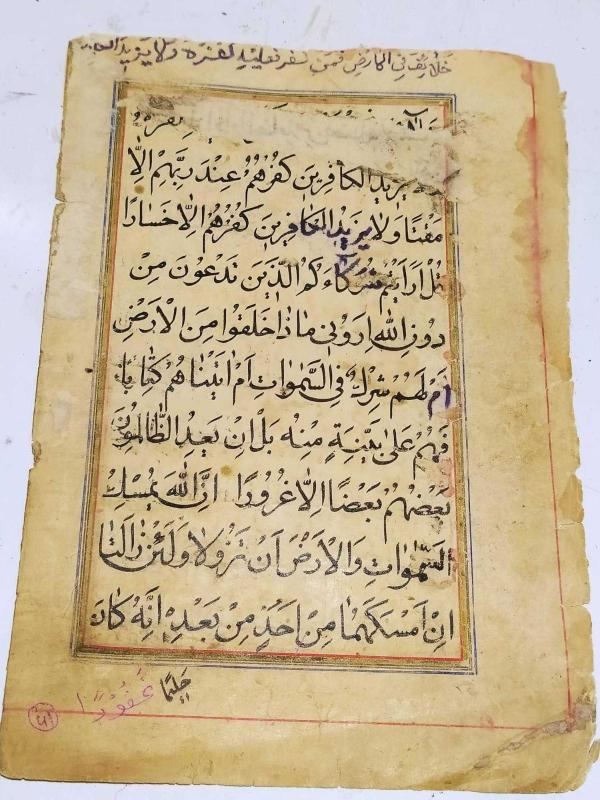 خلائف في الارض فمن كفر فعليه كفره ولا يزيد
كفره
يزيد الكافرين كفرهم عند ربهم الا
مقتا ولا يزيد الكافرين كفرهم الا خسارا
قل ارايتم شركاءكم الذين تدعون من
دون الله اروني ماذا خلقوا من الارض
ام لهم شرك في السموات ام اتيناهم كتابا
فهم على بينة منه بل ان يعد الظالمون
بعضهم بعضا الا غرورا ان الله يمسك
السموات والارض ان تزولا ولئن زالتا
ان امسكهما من احد من بعده انه كان
حليما غفورا